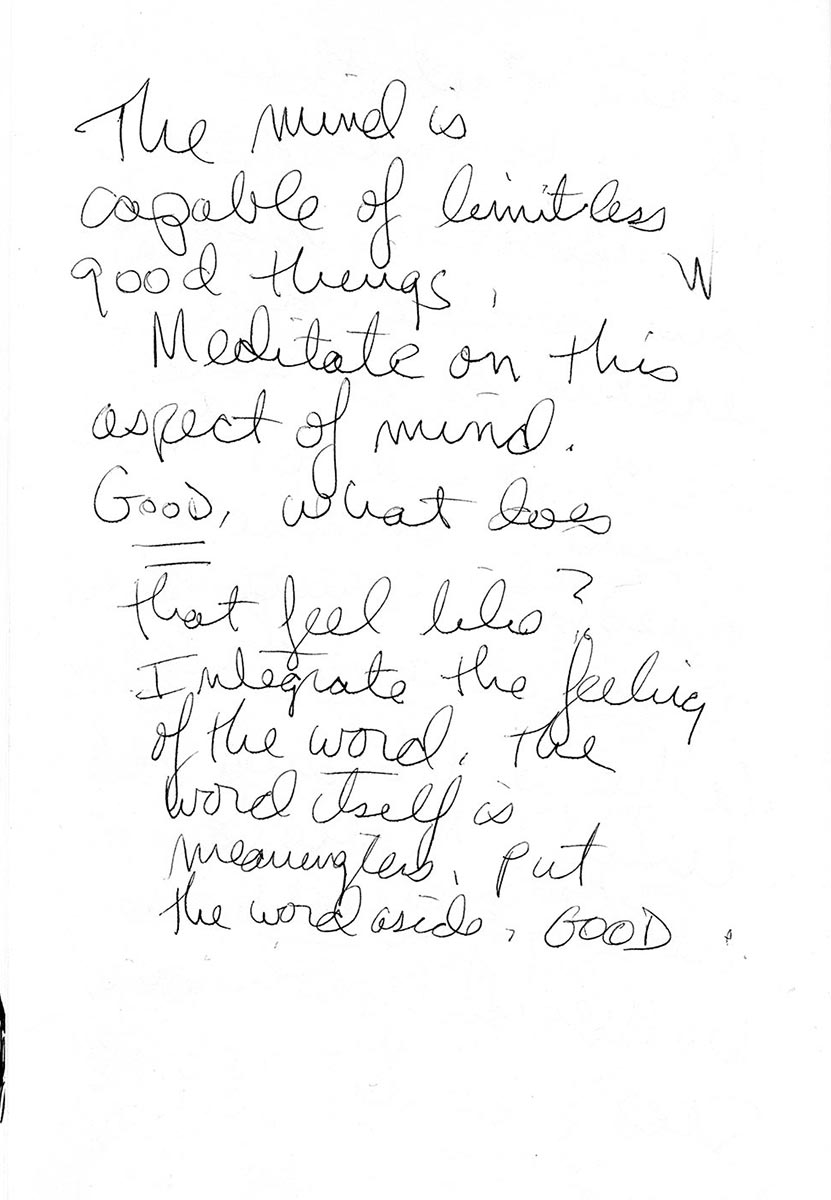 The mind is
capable of limitless
good things, W
Meditate on this
aspect of mind.
GOOD, what does
that feel like?
Integrate the feeling
of the word, the
word itself is
meaningless, put
the word aside, GOOD.